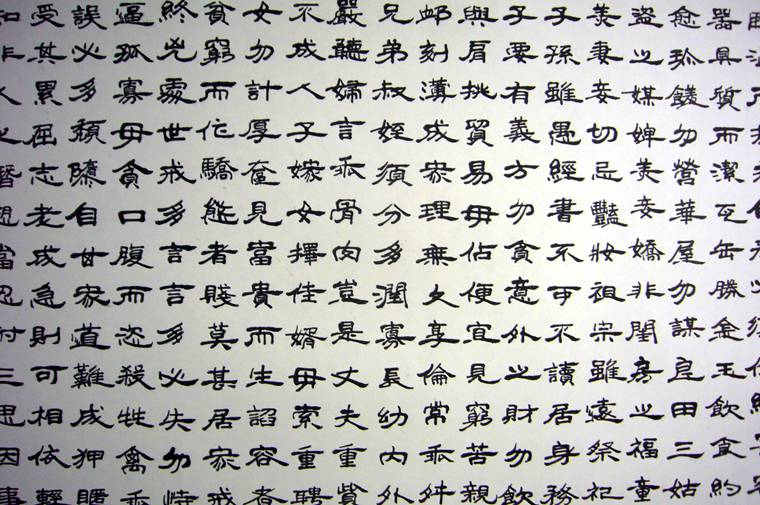 器具質而潔瓦缶勝金玉飲食約
愈珍饈勿營華屋勿謀良田三姑
盜之媒婢美妾嬌非閨房之福童
美妻妾切忌豔妝祖宗雖遠祭祀
子孫雖愚經書不可不讀居身務
子要有義方勿貪意外之財勿飲
與肩挑貿易毋佔便宜見窮苦親
卹刻薄成家理無久享倫常乖舛
兄弟叔姪須分多潤寡長幼內外
嚴聽婦言乖骨肉豈是丈夫重貲
不成人子嫁女擇佳婿毋索重聘
女勿計厚奩見富貴而生諂容者
貧窮而作驕態者賤莫甚居家戒
終兇處世戒多言言多必失勿恃
逼孤寡毋貪口腹而恣殺牲禽乖
誤必多頹隳自甘家道難成狎暱
受其累屈志老成急則可相依輕